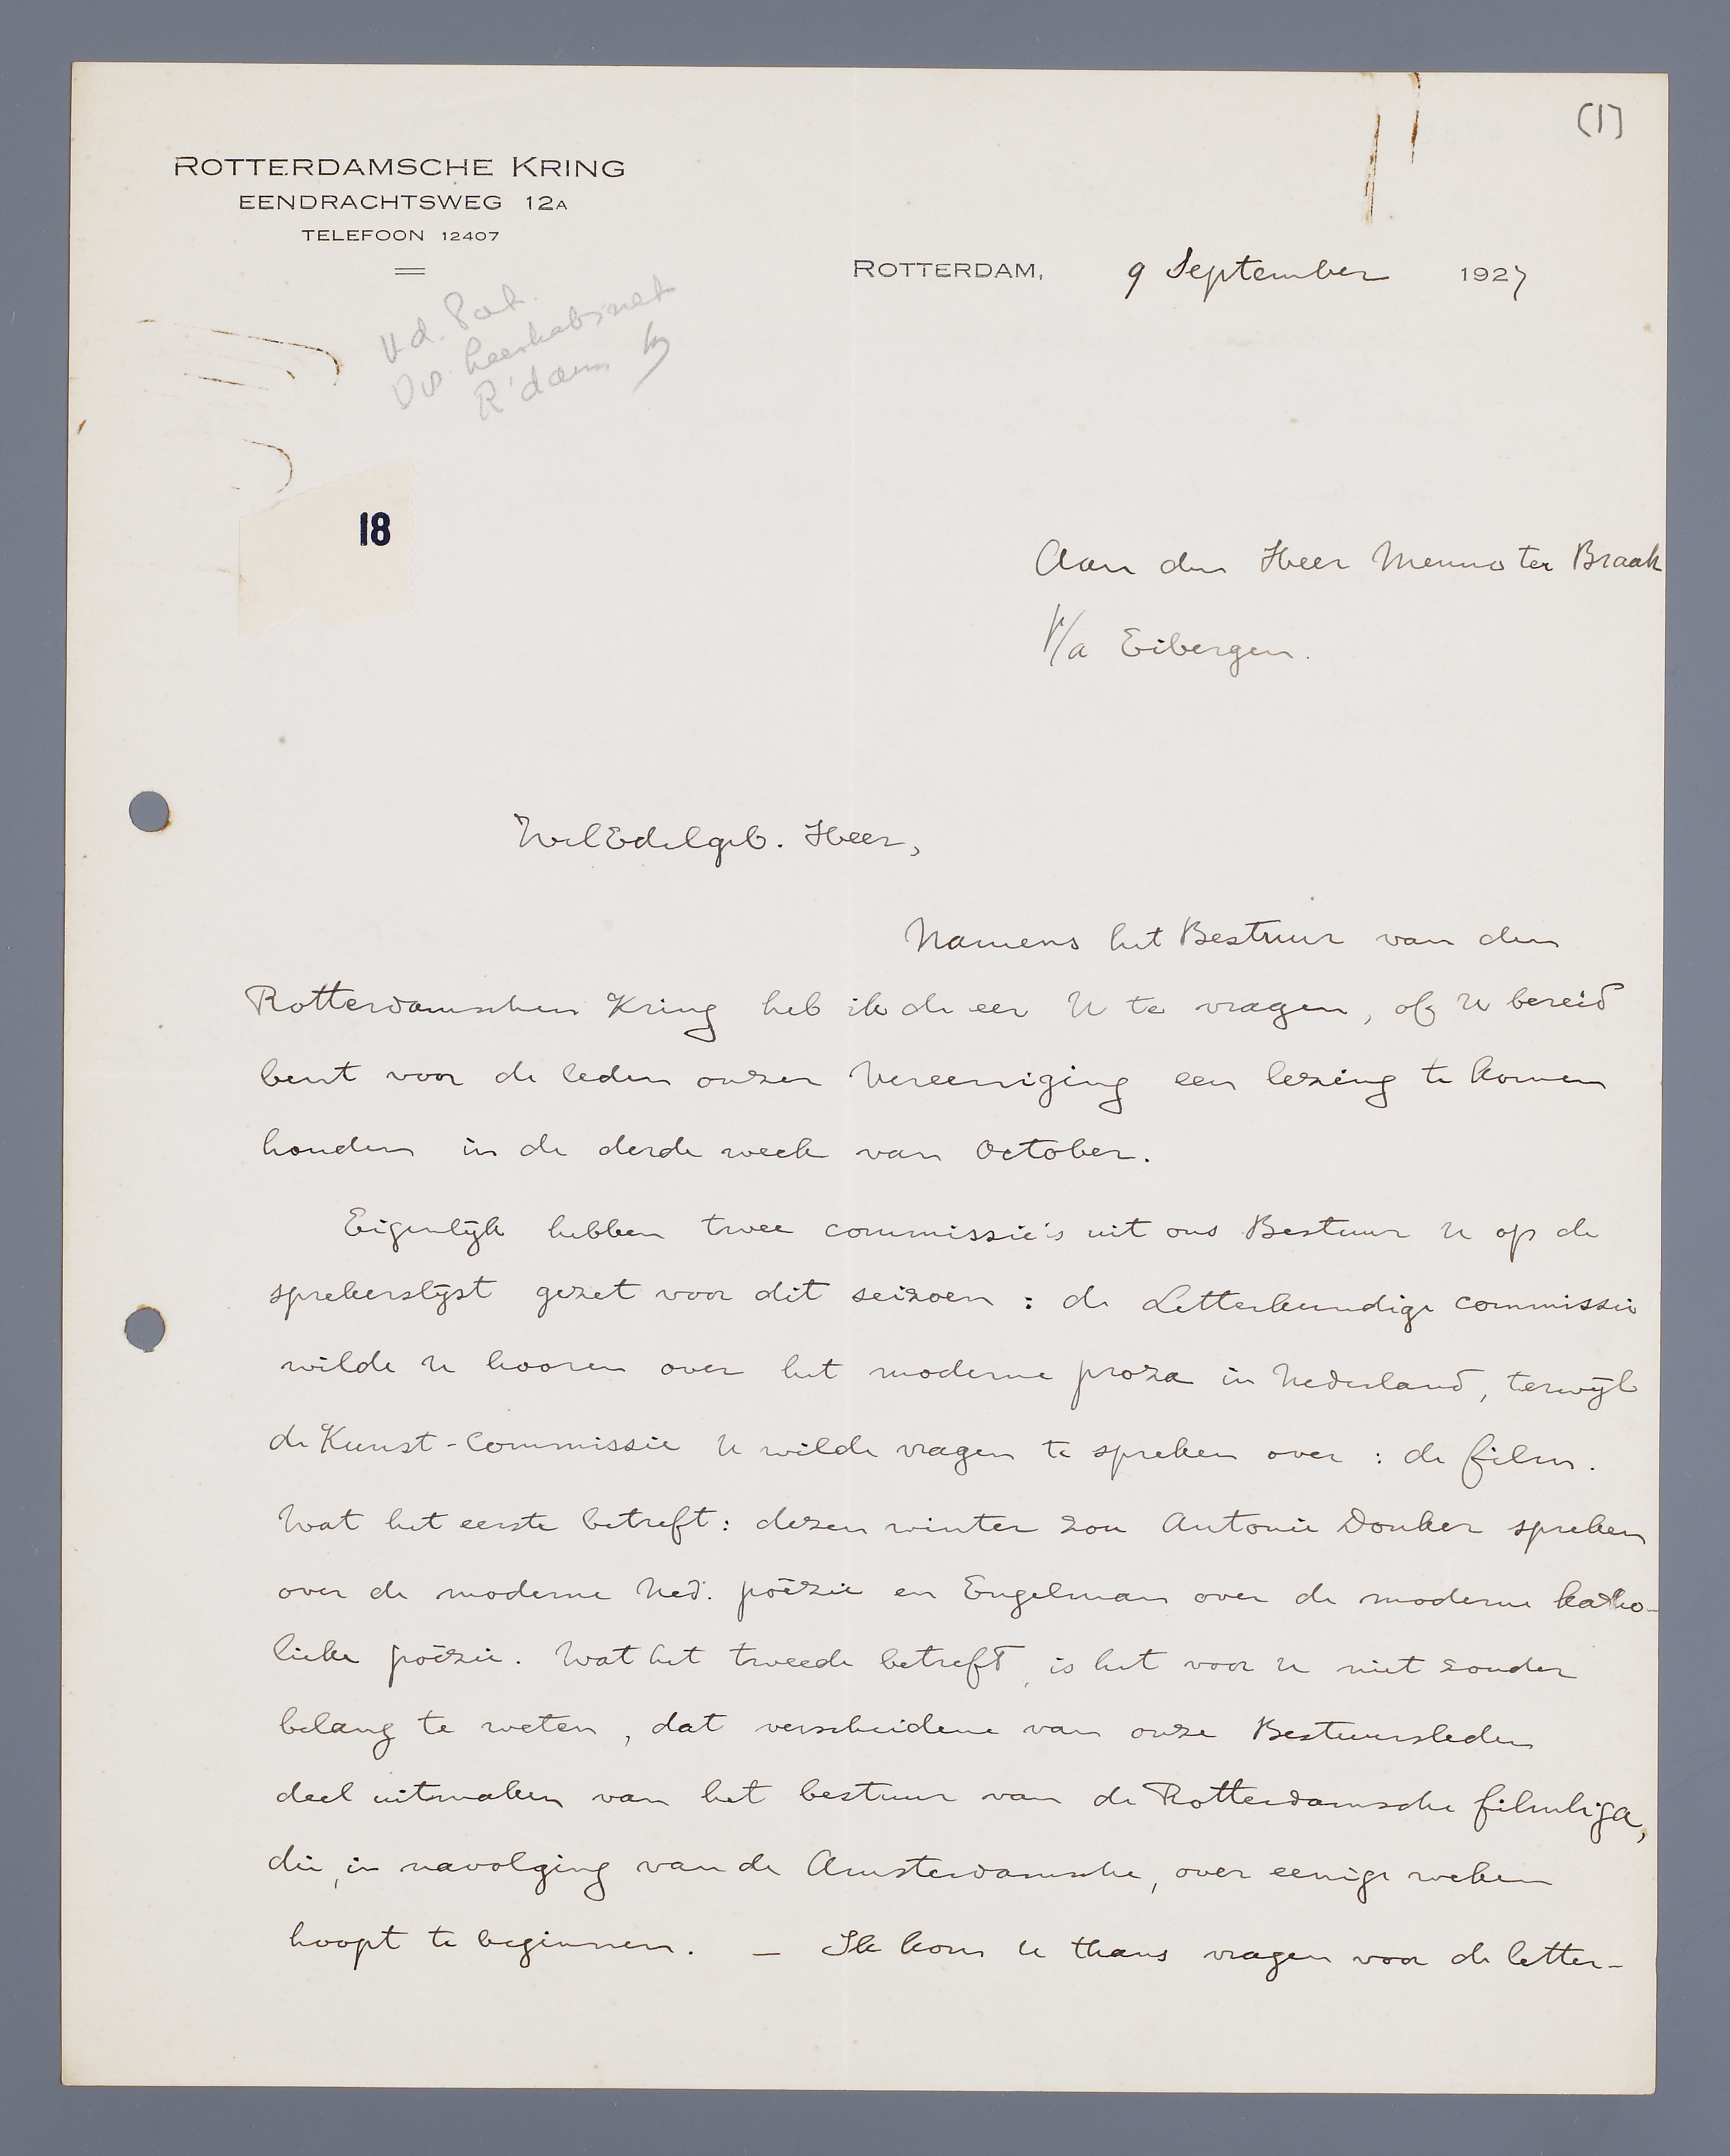 (1)
ROTTERDAMSCHE KRING
EENDRACHTSWEG 12A
TELEFOON 12407
ROTTERDAM, 9 September 1927
R'dam
18
Aan den Heer Menno ter Braak
p/a Eibergen.
WelEdelgeb. Heer,
Namens het Bestuur van den
Rotterdamschen Kring heb ik de eer U te vragen, of U bereid
bent voor de leden onzer Vereeniging een lezing te komen
houden in de derde week van October.
Eigenlijk hebben twee commissie's uit ons Bestuur U op de
sprekerslijst gezet voor dit seizoen : de Letterkundige commissie
wilde U hooren over het moderne proza in Nederland, terwijl
de Kunst-commissie U wilde vragen te spreken over : de film.
Wat het eerste betreft: dezen winter zou Antonie Donker spreken
over de moderne Ned. poëzie en Engelman over de moderne katho-
lieke poëzie. Wat het tweede betreft, is het voor U niet zonder
belang te weten, dat verscheidene van onze Bestuursleden
deel uitmaken van het bestuur van de Rotterdamsche filmliga,
die, in navolging van de Amsterdamsche, over eenige weken
hoopt te beginnen. — Ik kom U thans vragen voor de letter-